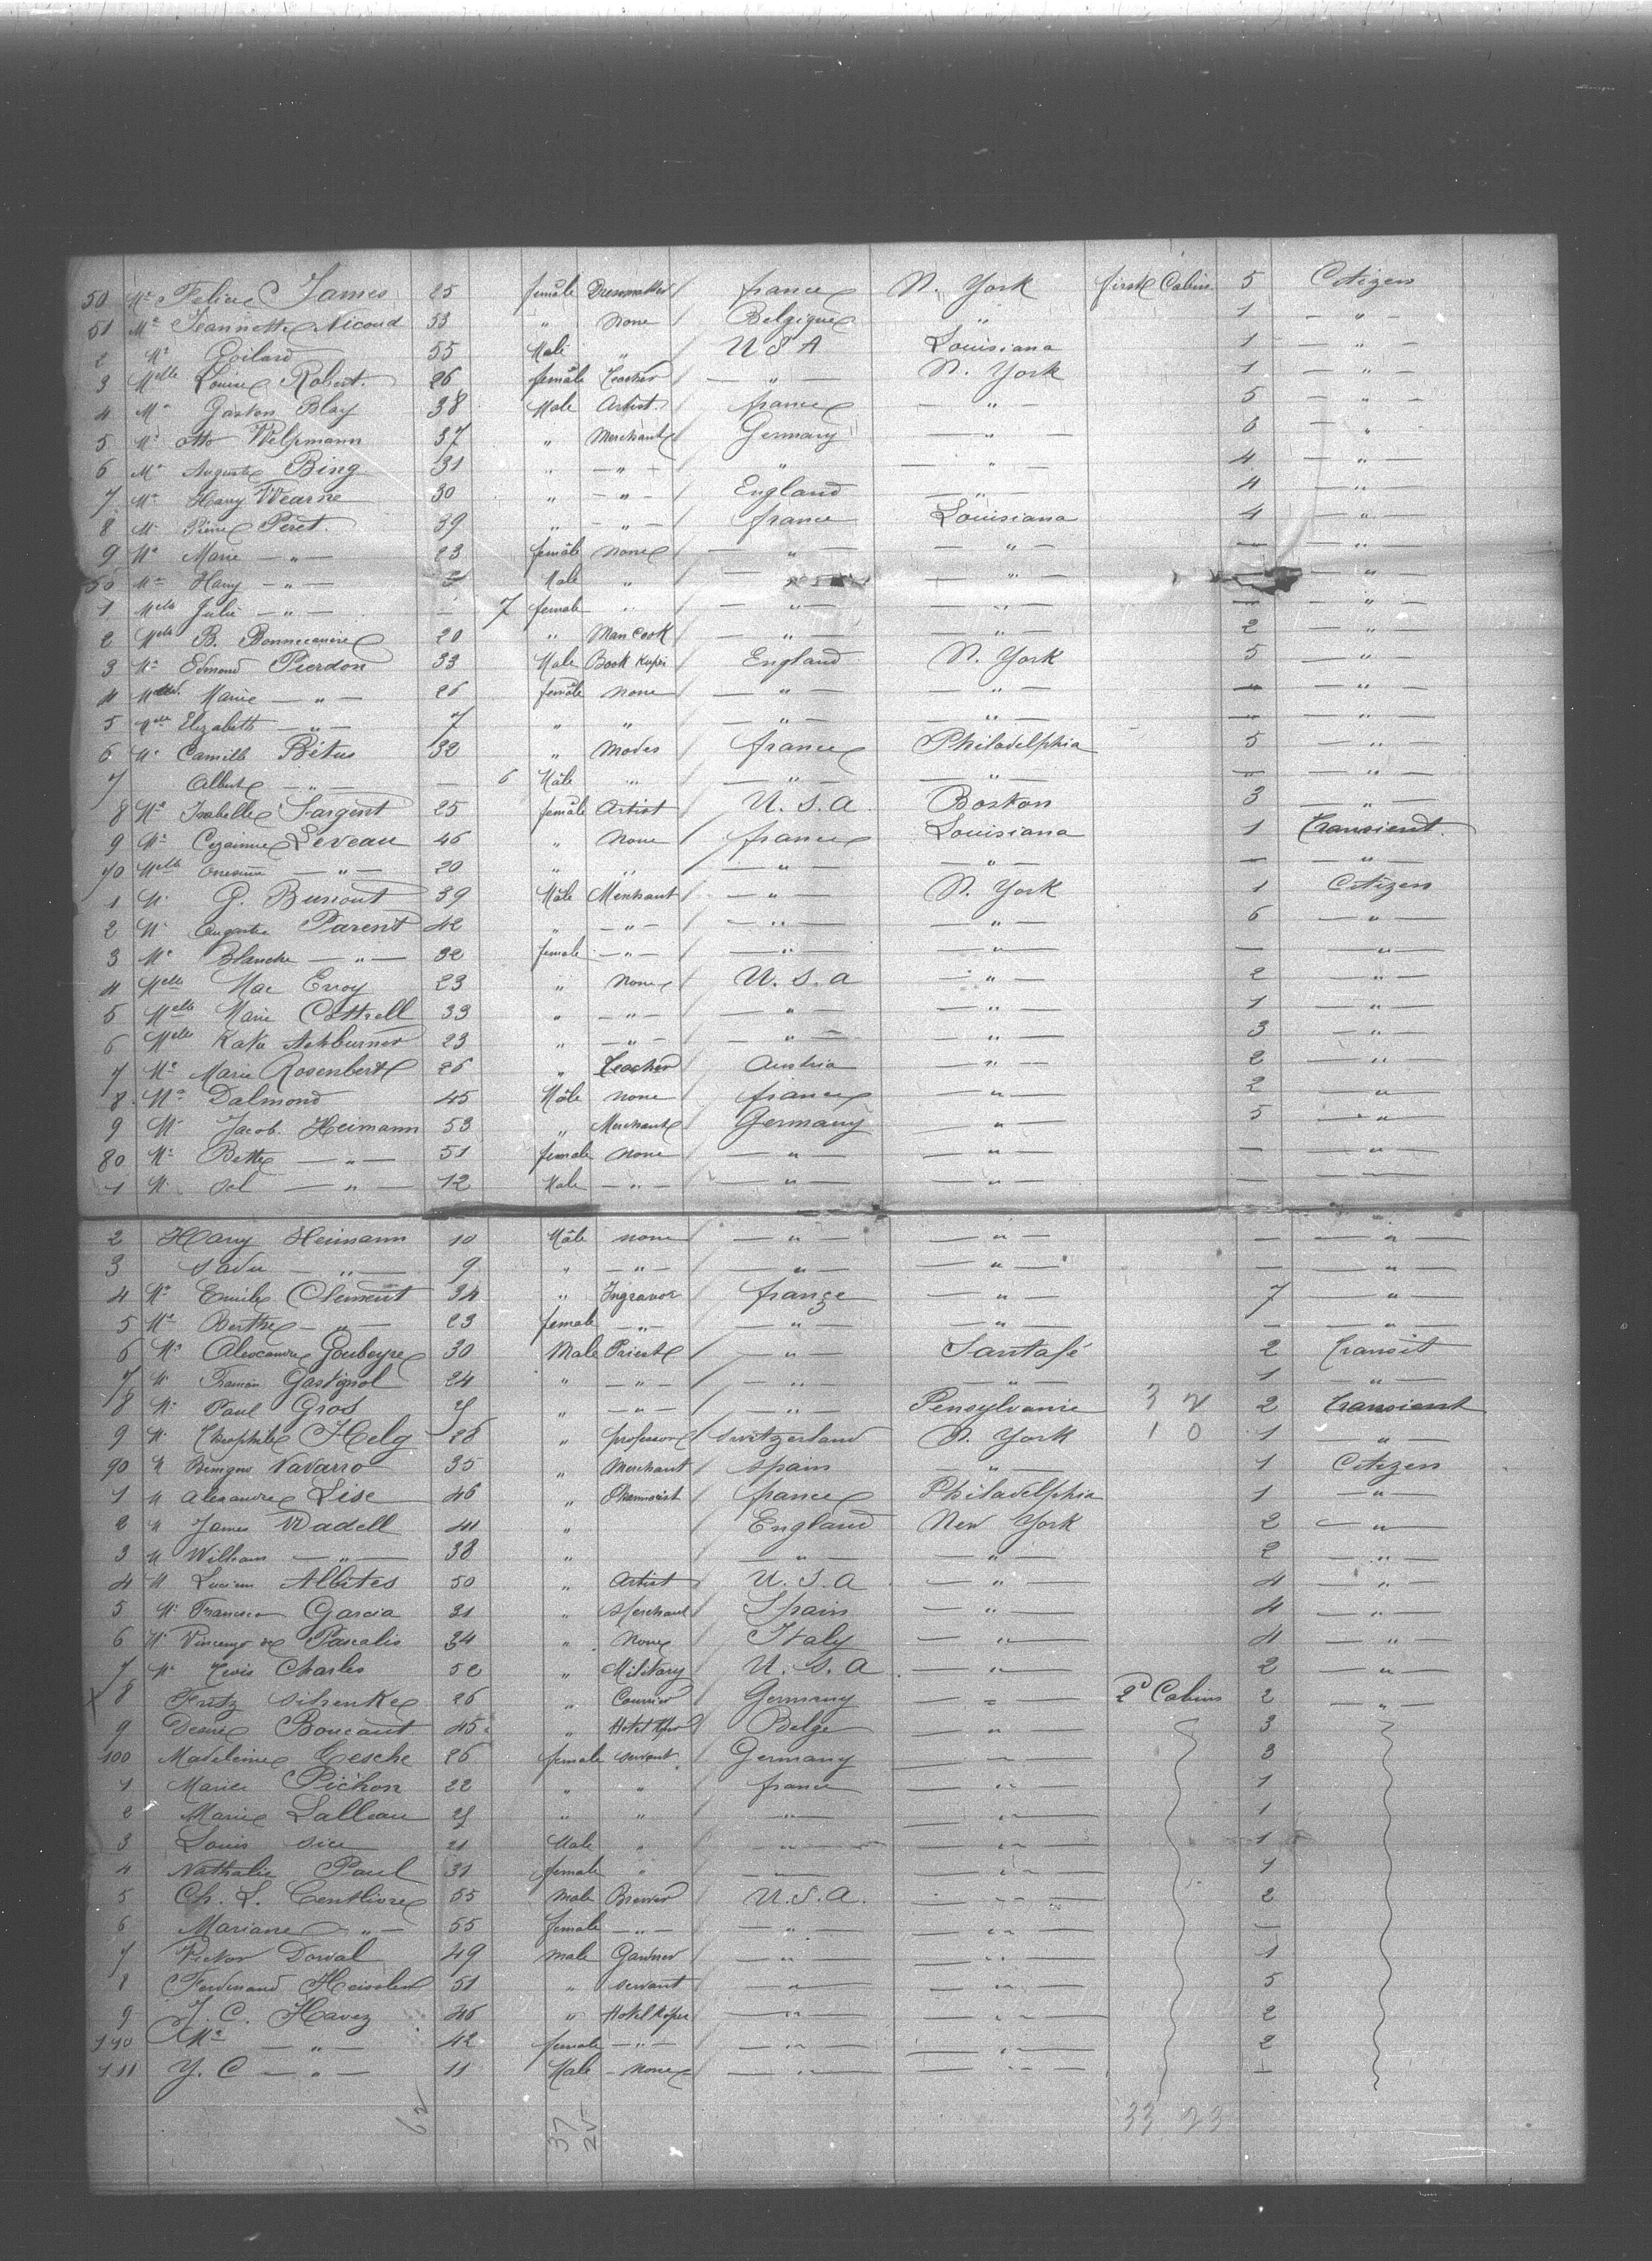 50 Me Felice James 25 female Dressmaker / france N. York first Cabin 5 Citizen
51 Me Jeannette Nicoud 53 " none / Belgique " 1 — " —
2 Mr Goilard 55 Male " / U S A Louisiana 1 — " —
3 Melle Louise Robert. 26 female Teacher / — " — N. York 1 — " —
4 Mr Gaston Blay 38 Male Artist / france — " — 5 — " —
5 Mr Otto Welpmann 37 " Merchant / Germany — " — 6 — " —
6 Mr Auguste Bing 31 " — " — / " — " — 4 — " —
7 Mr Harry Wearne 30 " — " — / England — " — 4 — " —
8 Mr Pierre Peret. 39 " — " — / france Louisiana 4 — " —
9 Me Marie — " — 23 female none / — " — — " — — — " —
Mr Harry — " — Male " / — " — — " — — — " —
1 Melle Julie — " — — 7 female " / — " — — " — — — " —
2 Melle B. 20 " Man Cook / — " — — " — 2 — " —
3 Mr Edmond Pierdon 33 Male Book Keper / England N. York 5 — " —
4 Marie — " — 26 female none / — " — — " — — — " —
5 Melle Elizabeth — " — 7 " " / — " — — " — — — " —
6 Me Camille Bétus 32 " Modes / france Philadelphia 5 — " —
7 Albert — " — — 6 Mâle " / — " — — " — — — " —
8 Me Isabelle Sargent 25 female Artist / U. S. A. Boston 3 — " —
9 Me Leveau 46 " None / france Louisiana 1 Transient
70 Melle — " — 20 " " / — " — — " — — — " —
1 Mr G. 39 Mâle Merchant / — " — N. York 1 Citizen
2 Mr Auguste Parent 42 " — " — / — " — — " — 6 — " —
3 Me Blanche — " — 32 female — " — / — " — — " — — — " —
4 Melle Mac Evoy 23 " None / U. S. A — " — 2 — " —
5 Melle Marie Cottrell 33 " — " — / — " — — " — 1 — " —
6 Melle Kate 23 " — " — / — " — — " — 3 — " —
7 Me Marie Rosenbert 26 " Teacher / Austria — " — 2 — " —
8 Mr Dalmond 45 Mâle none / france — " — 2 — " —
9 Mr Jacob. Heimann 53 " Merchant / Germany — " — 5 — " —
80 Me Bette — " — 51 female none / — " — — " — — — " —
1 Mr Sol — " — 12 Male — " — / — " — — " — — —
2 Hary Heimann 10 Mâle none / — " — — " — — — " —
3 Sadie — " — 9 " — " — / — " — — " — — — " —
4 Mr Emile Clement 34 " Ingraver / france — " — 7 — " —
5 Me Berthe — " — 23 female — " — / — " — — " — — — " —
6 Mr Alexandre Goubeyre 30 Male Priest / — " — Santafé 2 Transit
7 Mr Ramon Gastignol 24 " — " — / — " — — " — 1 — " —
8 Mr Paul Gros " — " — / — " — Pensylvanie 3 2 2 Transient
9 Mr Théophile Helg 28 " professor / Switzerland N. York 1 0 1 "
90 M Benigno Navarro 35 " Merchant / Spain — " — 1 Citizen
1 M Alexandre Lise 46 " / france Philadelphia 1 — " —
2 M James Wadell 41 " / England New York 2 — " —
3 M William — " — 38 " / — " — — " — 2 — " —
4 M Lucien Albites 50 " Artist / U. S. A — " — 4 — " —
5 Mr Francisco Garcia 31 " Merchand / Spain — " — 4 — " —
6 Mr Vincenzo de Pascalis 24 " None / Italy — " — 4 — " —
7 Mr Charles 52 " Military / U. S. A — " — 2 — " —
X 8 Fritz Schenke 26 " Courrier / Germany — " — 2d Cabins 2 — " —
9 Desire Boucaut 45 " Hotel Kper / Belge — " — 3
100 Madeleine Cesche 26 female servant / Germany — " — 3
1 Marie Pichon 22 " " / france — " — 1
2 Marie Lalleau " " / — " — — " — 1
3 Louis 21 Male " / — " — — " — 1
4 Nathalie Paul 31 female " / — " — — " — 1
5 Ch. L. Centlivre 55 Male Brewer / U. S. A. — " — 2
6 Mariane — " — 55 female — " — / — " — — " — —
7 Victor Dorval 49 male Gardner / — " — — " — 1
8 Ferdinand 51 " servant / — " — — " — 5
9 J. C. Havez 46 " Hotel Keper / — " — — " — 2
110 Me — " — 42 female — " — / — " — — " — 2
111 Y. C — " — 11 Male — none / — " — — " — —
62 37 25 33 23